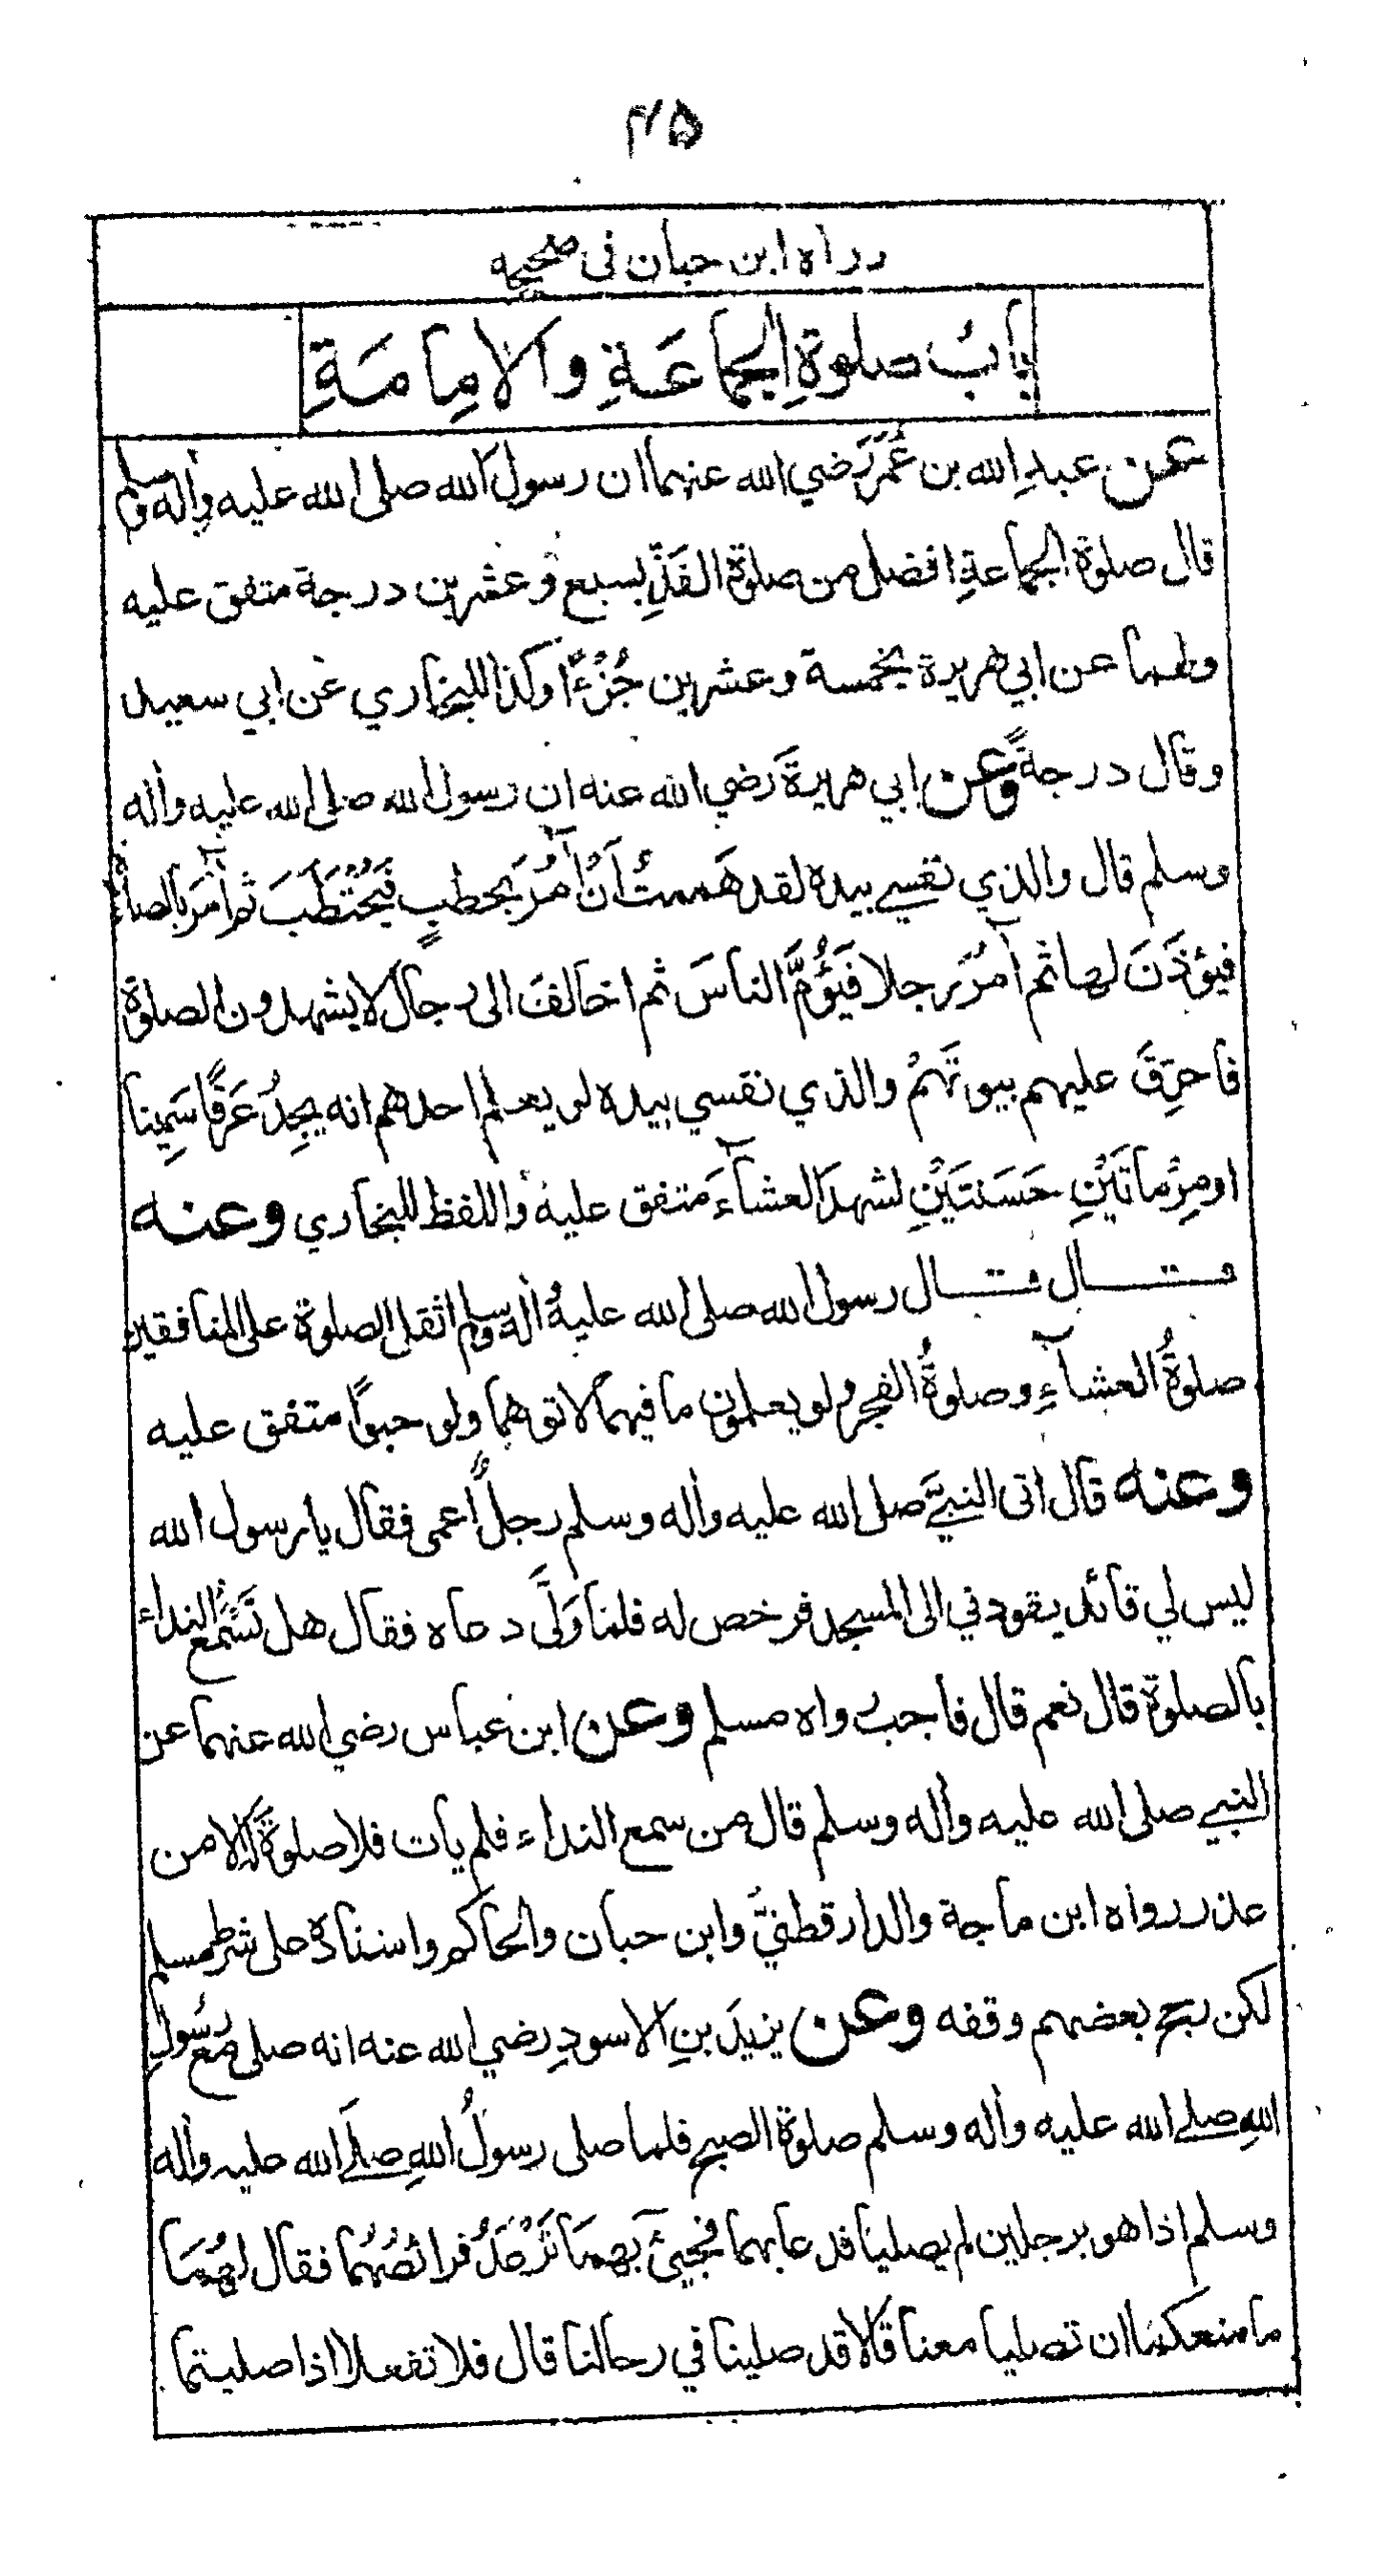 ۴۵
رواه ابن حبان فى صحيحه
بابُ صلوةِ الجماعَةِ والامِامَةِ
عن عبدِ الله بن عُمَرَ رَضي الله عنهما ان رسولَ الله صلى الله عليه واٰله وسلم
قال صلوة الجماعةِ افضل من صلوة الفَذِّ بسبع وعشرين درجة متفق عليه
ولهما عن ابي هريرة بخمسة وعشرين جُزْءًا وكذا للبخاري عن ابي سعيد
وقال درجةً وعن ابي هريرةَ رَضي الله عنه ان رسول الله صلى الله عليه واٰله
وسلم قال والذي نفسي بيده لقد هَممتُ اَنْ آمُرَ بحطبٍ فَيُحْتَطَبَ ثم آمُرَ بالصلوة
فيؤذَنَ لها ثم آمُرَ رجلا فَيَؤُمَّ الناسَ ثم اخالفَ الى رجال لا يشهدون الصلوة
فاحرِّقَ عليهم بيوتَهمْ والذي نفسي بيده لو يعلم احدهم انه يجِدُ عَرْقًا سَمِينا
او مِرْماتَيْنِ حَسَنتَيْنِ لشهدَ العشآءَ متفق عليه واللفظ للبخاري وعنه
قال قال رسول الله صلى الله عليه واٰله وسلم اثقل الصلوة على المنافقين
صلوةُ العشآءِ وصلوةُ الفجر ولو يعلمون ما فيهما لاتوهما ولو حبوًا متفق عليه
وعنه قال اتى النبيَّ صلى الله عليه واٰله وسلم رجلٌ اعمى فقال يا رسول الله
ليس لي قائد يقودني الى المسجد فرخص له فلما وَلَّى دعاه فقال هل تَسْمَعُ النداء
بالصلوة قال نعم قال فاجب رواه مسلم وعن ابن عباس رضي الله عنهما عن
النبي صلى الله عليه واٰله وسلم قال من سمع النداء فلم يات فلا صلوةَ له الا من
عذر رواه ابن ماجة والدارقطنيُّ وابن حبان والحاكم واسناده على شرط مسلم
لكن رجح بعضهم وقفه وعن يزيدَ بنِ الاسودِ رضي الله عنه انه صلى مع رسُولِ
اللهِ صلى الله عليه واٰله وسلم صلوة الصبح فلما صلى رسولُ اللهِ صلَى الله عليه واٰله
وسلم اذا هو برجلين لم يصليا فدعا بهما فجيئ بهما تَرْعَدُ فرائصُهُما فقال لهُمَا
ما منعكما ان تصليا معنا قالا قد صلينا في رحالنا قال فلا تفعلا اذا صليتما